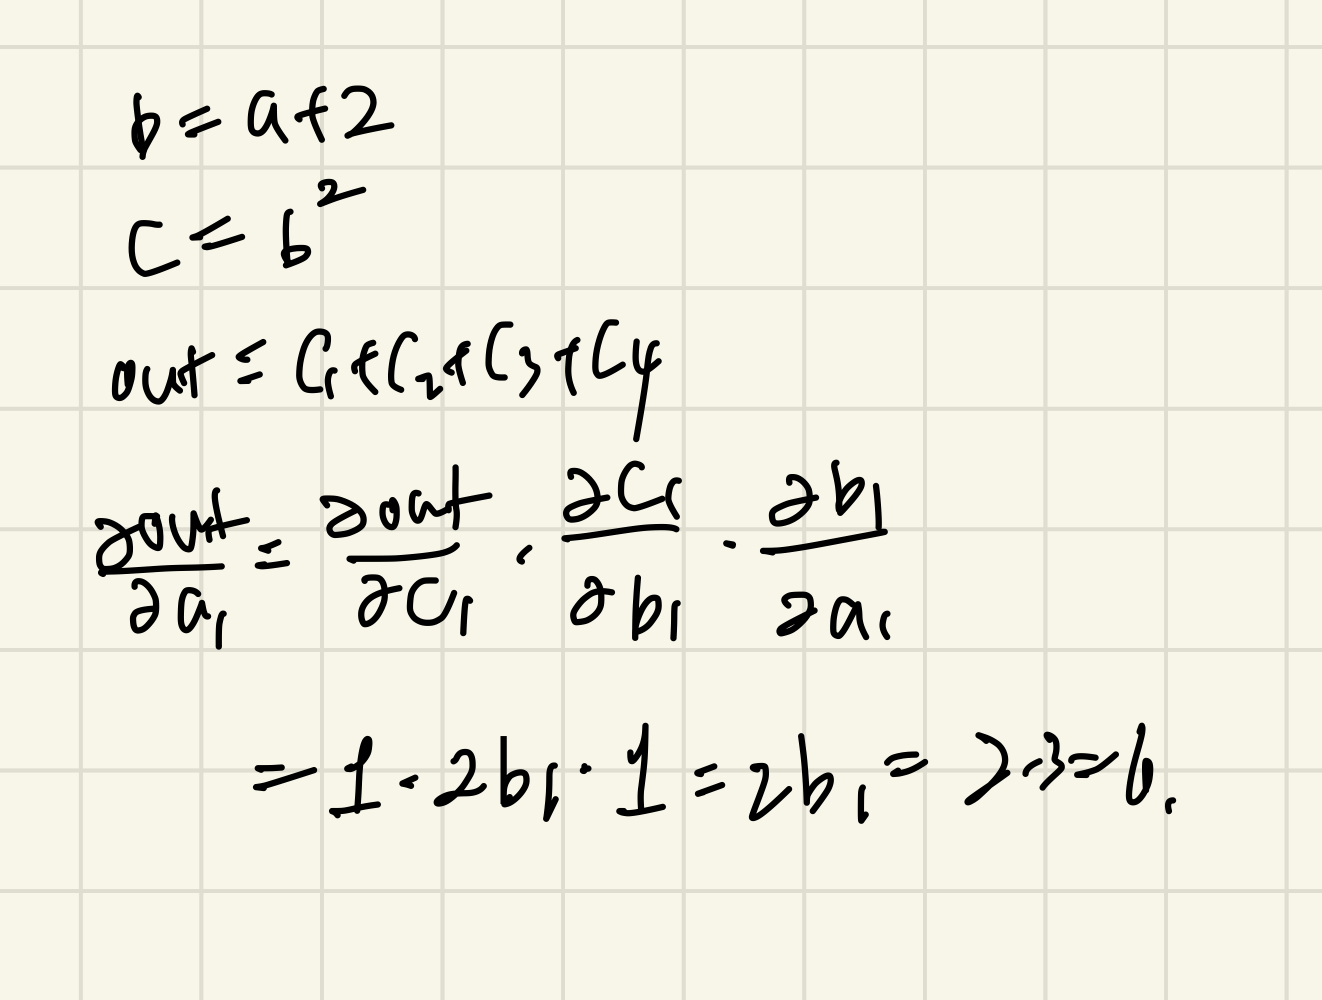 b = a+2
c = b²
out = C₁+C₂+C₃+C₄
∂out/∂a₁ = ∂out/∂C₁ · ∂C₁/∂b₁ · ∂b₁/∂a₁
= 1 · 2b₁ · 1 = 2b₁ = 2·3=6.